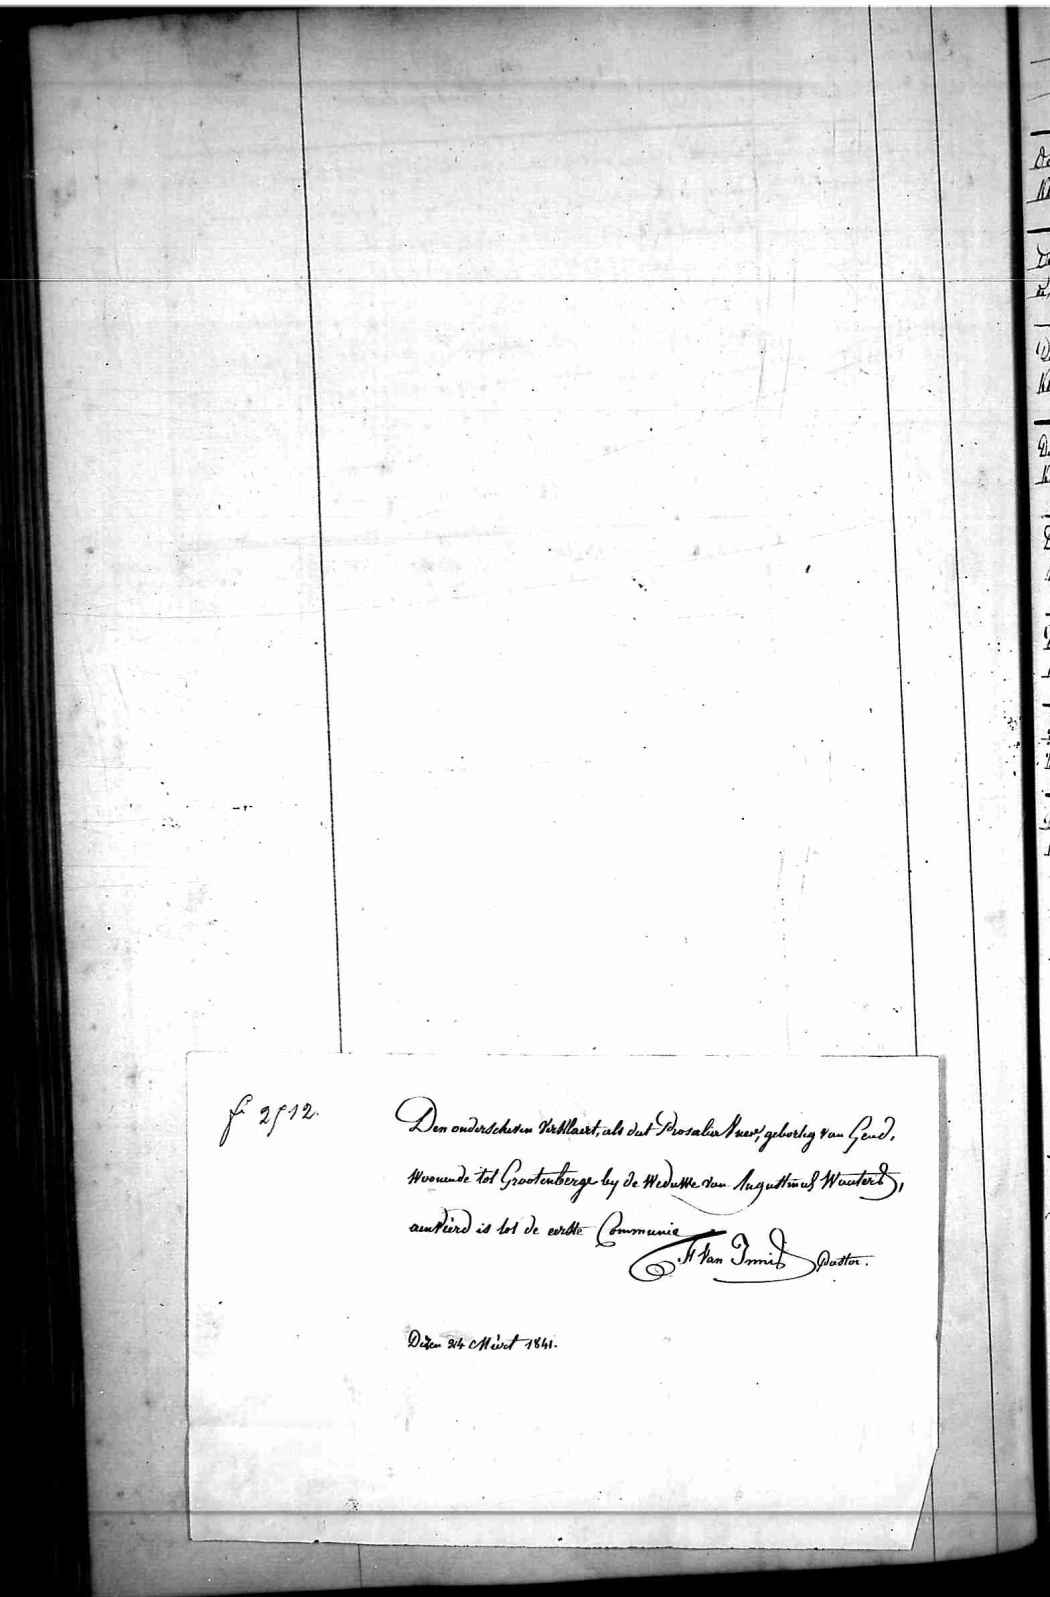 f° 2512.
Den onderscheven verklaert, als dat Rosalie, gebortig van Gend,
woonende tot Grootenberge by de Weduwe van Augustinus Wauters,
aenveird is tot de eerste Communie
Van Innis Pastor.
Dezen 24 Meirt 1841.